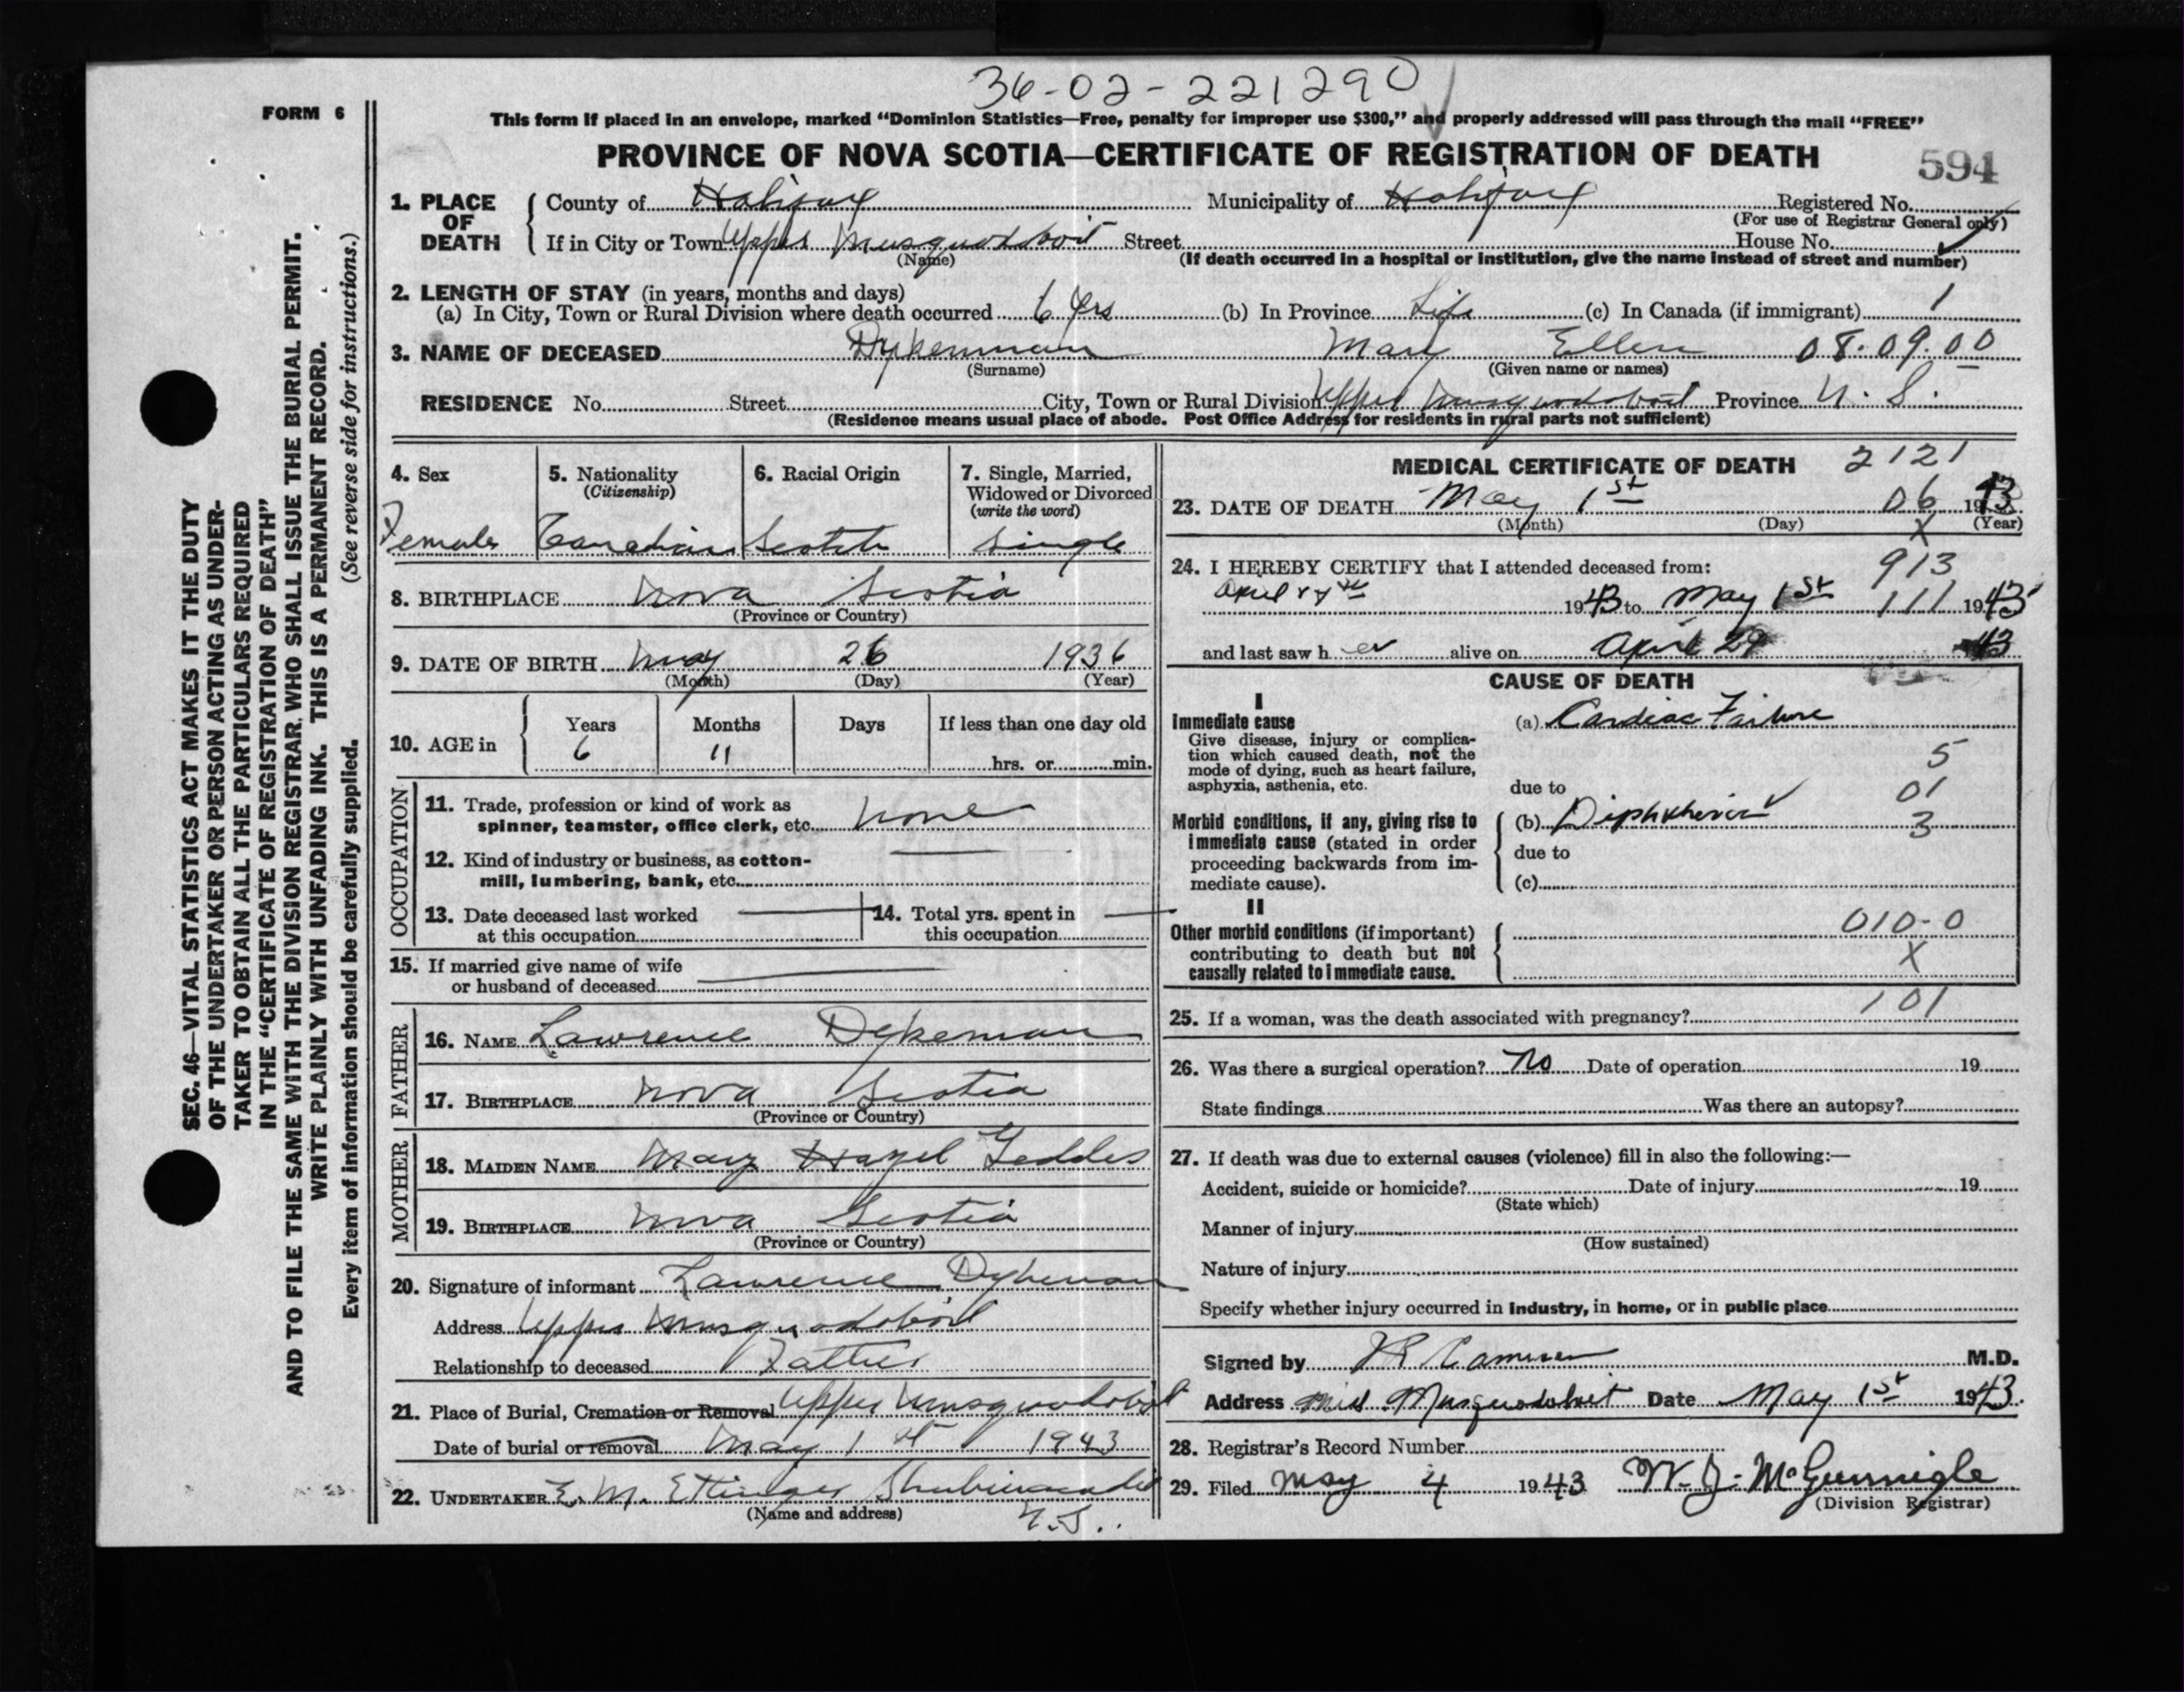 36-02-221290
FORM 6
This form if placed in an envelope, marked “Dominion Statistics—Free, penalty for improper use $300,” and properly addressed will pass through the mail “FREE”
PROVINCE OF NOVA SCOTIA—CERTIFICATE OF REGISTRATION OF DEATH
594
1. PLACE OF DEATH
County of Halifax Municipality of Halifax Registered No.
(For use of Registrar General only)
If in City or Town Upper Musquodoboit Street House No.
(Name) (If death occurred in a hospital or institution, give the name instead of street and number)
2. LENGTH OF STAY (in years, months and days)
(a) In City, Town or Rural Division where death occurred 6 yrs (b) In Province Life (c) In Canada (if immigrant) 1
3. NAME OF DECEASED Dykenman Mary Ellen 08.09.00
(Surname) (Given name or names)
RESIDENCE No. Street City, Town or Rural Division Upper Musquodoboit Province N. S.
(Residence means usual place of abode. Post Office Address for residents in rural parts not sufficient)
SEC. 46—VITAL STATISTICS ACT MAKES IT THE DUTY
OF THE UNDERTAKER OR PERSON ACTING AS UNDER-
TAKER TO OBTAIN ALL THE PARTICULARS REQUIRED
IN THE “CERTIFICATE OF REGISTRATION OF DEATH”
AND TO FILE THE SAME WITH THE DIVISION REGISTRAR, WHO SHALL ISSUE THE BURIAL PERMIT.
WRITE PLAINLY WITH UNFADING INK. THIS IS A PERMANENT RECORD.
Every item of information should be carefully supplied. (See reverse side for instructions.)
4. Sex
Female
5. Nationality
(Citizenship)
Canadian
6. Racial Origin
Scotch
7. Single, Married,
Widowed or Divorced
(write the word)
Single
8. BIRTHPLACE Nova Scotia
(Province or Country)
9. DATE OF BIRTH May 26 1936
(Month) (Day) (Year)
10. AGE in
Years Months Days If less than one day old
6 11 hrs. or min.
OCCUPATION
11. Trade, profession or kind of work as
spinner, teamster, office clerk, etc. None
12. Kind of industry or business, as cotton-
mill, lumbering, bank, etc.
13. Date deceased last worked
at this occupation
14. Total yrs. spent in
this occupation
15. If married give name of wife
or husband of deceased
FATHER
16. NAME Lawrence Dykeman
17. BIRTHPLACE Nova Scotia
(Province or Country)
MOTHER
18. MAIDEN NAME Mary Hazel Geddes
19. BIRTHPLACE Nova Scotia
(Province or Country)
20. Signature of informant Lawrence Dykeman
Address Upper Musquodoboit
Relationship to deceased Father
21. Place of Burial, Cremation or Removal Upper Musquodoboit
Date of burial or removal May 1st 1943
22. UNDERTAKER E. M. Ettinger Shubenacadie
(Name and address) N.S.
MEDICAL CERTIFICATE OF DEATH 2121
23. DATE OF DEATH May 1st 06 1943
(Month) (Day) X (Year)
24. I HEREBY CERTIFY that I attended deceased from: 913
April 1943 to May 1st 111 1943
and last saw her alive on April 29 43
CAUSE OF DEATH
I
Immediate cause
Give disease, injury or complica-
tion which caused death, not the
mode of dying, such as heart failure,
asphyxia, asthenia, etc.
(a) Cardiac Failure
5
due to 01
Morbid conditions, if any, giving rise to
immediate cause (stated in order
proceeding backwards from im-
mediate cause).
(b) Diphtheria 3
due to
(c)
II
Other morbid conditions (if important)
contributing to death but not
causally related to immediate cause.
010-0
X
25. If a woman, was the death associated with pregnancy? 101
26. Was there a surgical operation? No Date of operation 19
State findings Was there an autopsy?
27. If death was due to external causes (violence) fill in also the following:—
Accident, suicide or homicide? Date of injury 19
(State which)
Manner of injury
(How sustained)
Nature of injury
Specify whether injury occurred in industry, in home, or in public place
Signed by Cameron M.D.
Address Mid Musquodoboit Date May 1st 1943.
28. Registrar's Record Number
29. Filed May 4 1943 W. J. McGunnigle
(Division Registrar)